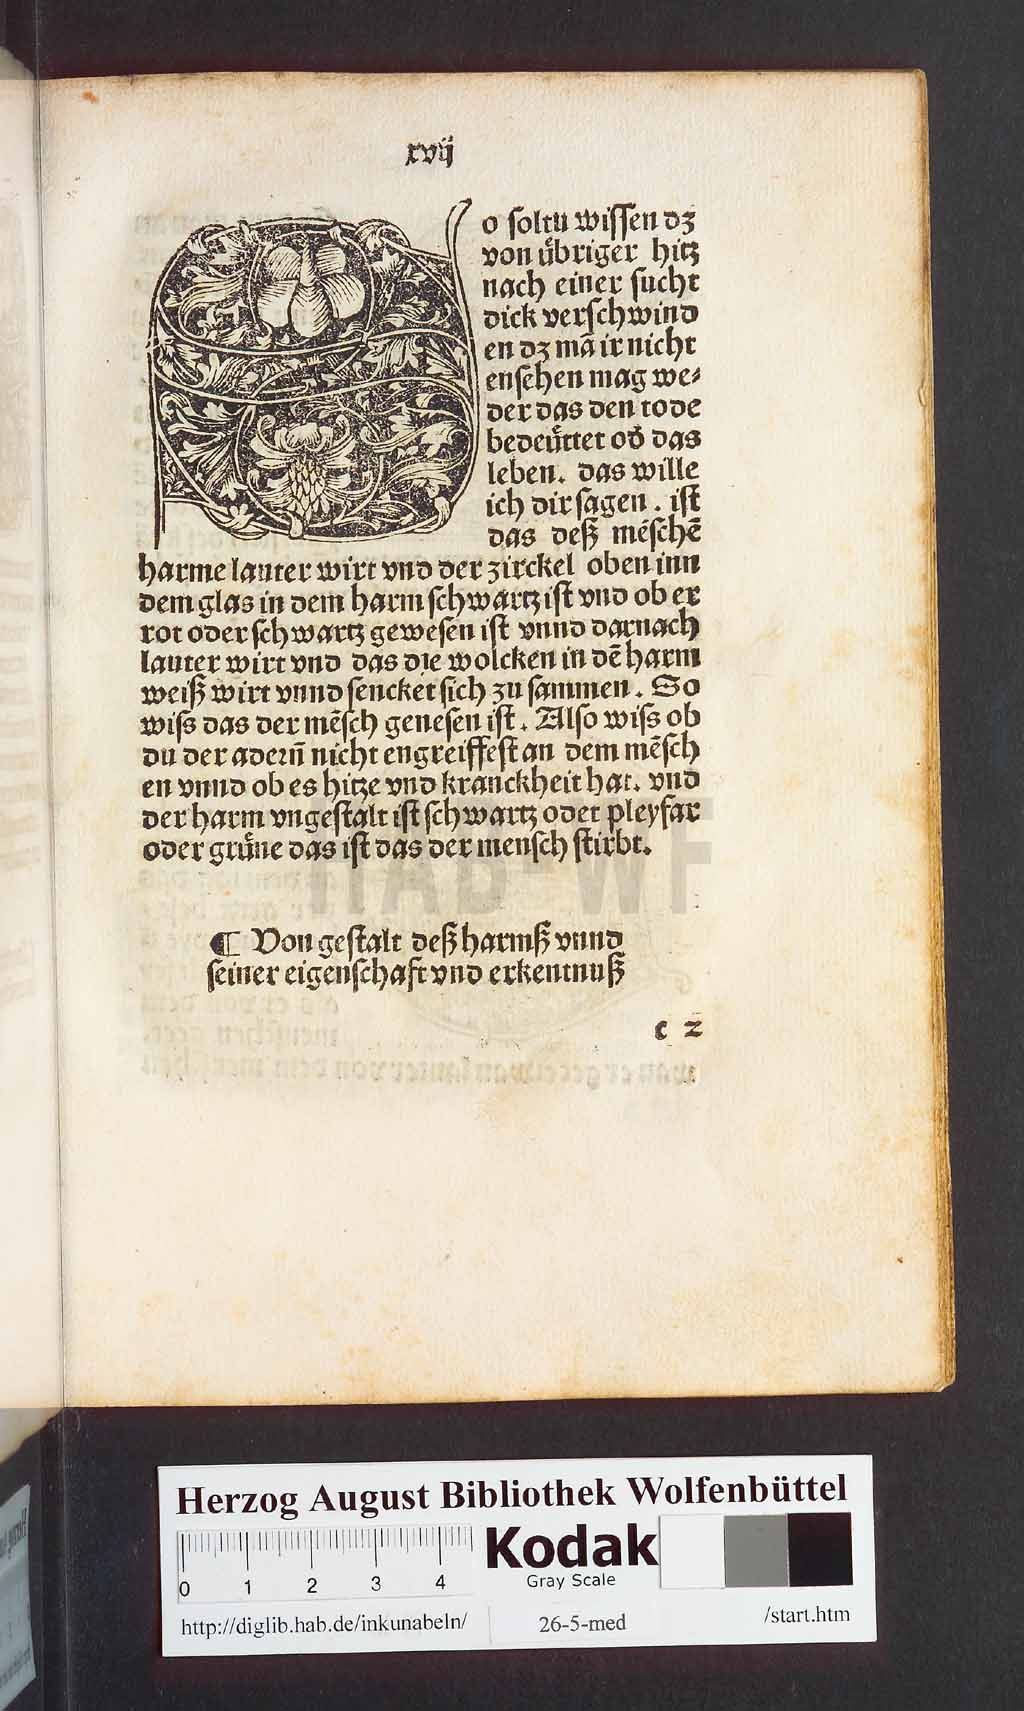 xvij
So soltu wissen dz
von übriger hitz
nach einer sucht
dick verschwind
en dz mā ir nicht
ensehen mag we⸗
der das den tode
bedeüttet od̕ das
leben. das wille
ich dir sagen. ist
das deß mēschē
harme lauter wirt vnd der zirckel oben inn
dem glas in dem harm schwartz ist vnd ob er
rot oder schwartz gewesen ist vnnd darnach
lauter wirt vnd das die wolcken in dē harm
weiß wirt vnnd sencket sich zu sammen. So
wiss das der mēsch genesen ist. Also wiss ob
du der adern̄ nicht engreiffest an dem mēsch
en vnnd ob es hitze vnd kranckheit hat. vnd
der harm vngestalt ist schwartz odet pleyfar
oder grüne das ist das der mensch stirbt.
¶ Von gestalt deß harmß vnnd
seiner eigenschaft vnd erkentnuß
c 2
HAB-WF
Herzog August Bibliothek Wolfenbüttel
0 1 2 3 4
Kodak
Gray Scale
http://diglib.hab.de/inkunabeln/ 26-5-med /start.htm